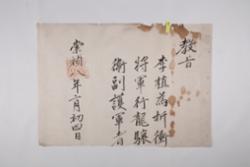 教旨
李植為折衝
將軍行龍驤
衛副護軍者
崇禎八年二月初四日